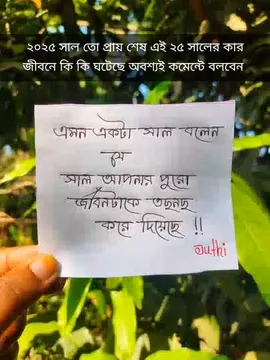 ২০২৫ সাল তো প্রায় শেষ এই ২৫ সালের কার
জীবনে কি কি ঘটেছে অবশ্যই কমেন্টে বলবেন
এমন একটা সাল বলেন
যে
সাল আপনার পুরো
জীবনটাকে তছনছ
করে দিয়েছে !!
Juthi